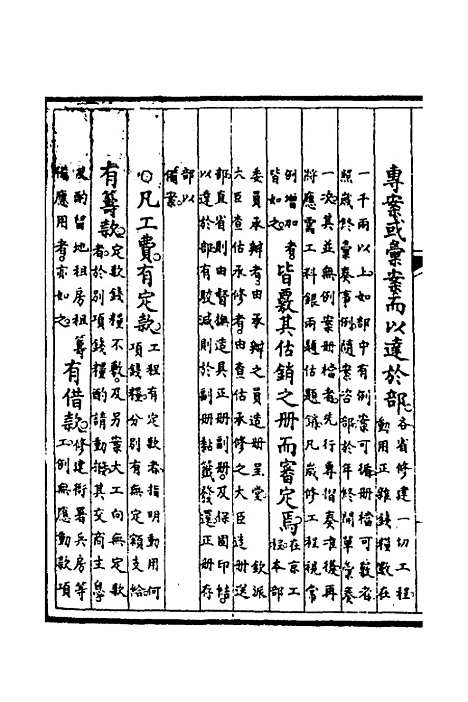 專案或彙案而以達於部各省修建一切工程
動用正雜錢糧數在
一千兩以上如部中有例案可循册檔可覈者
照歲終彙奏事例隨案咨部於年終開單彙奏
一次其並無例案册檔者先行專摺奏准後再
將應需工料銀兩題估題銷凡歲修工程視常
例增加者
皆如之皆覈其估銷之册而審定焉在京工
程本部
委員承辦者由承辦之員造册呈堂 欽派
大臣查估承修者由查估承修之大臣造册送
部直省則由督撫造具正册副册及保固印結
以達於部有駮減則於副册黏籤發還正册存
部以
備案
○凡工費有定款工程有定款者指明動用何
項錢糧分別有無定額支給
有籌款定款錢糧不敷及另案大工向無定款
者於別項錢糧酌請動撥其交商生
及酌留地租房租籌
備應用者亦如之有借款修建衙署兵房等
工例無應動款項